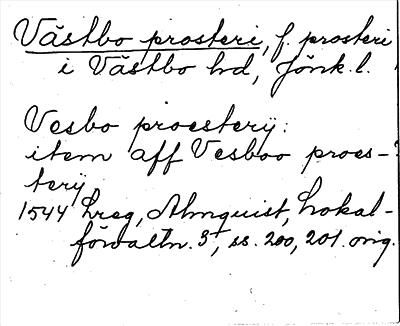 Västbo prosteri, f. prosteri
i Västbo hd, Jönk. l.
Vesbo proesterÿ:
item aff Vesboo proes-
terÿ
1544 Lreg, Almquist, Lokal-
förvaltn. 3, ss. 200, 201. orig.